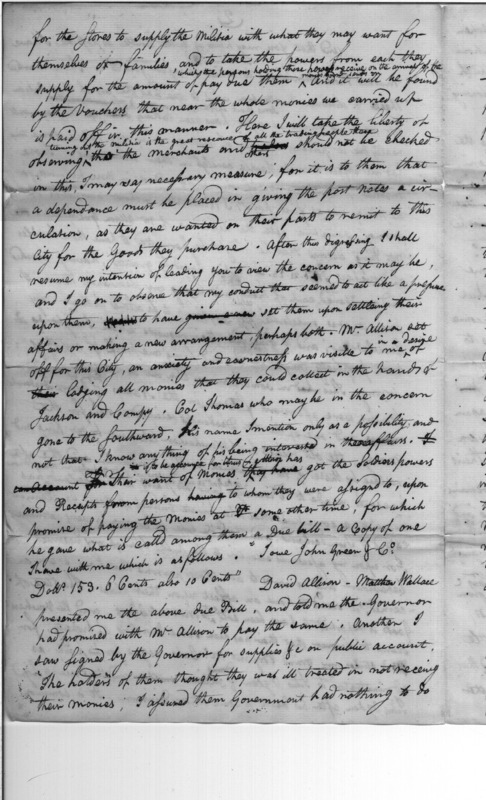 for the Stores to supply the Militia with what they may want for
themselves or families and to take the powers from each they
when the persons holding those powers receive on the amount of the
supply for the amount of pay due them And it will be found
by the Vouchers that near the whole monies we carried up
is paid off in this manner. Here I will take the liberty of
the militia is the great resource of all the trading people there
observing that the merchants and should not be checked
in this, I may say necessary measure, for it is to them that
a dependance must be placed in giving the post notes a cir-
culation, as they are wanted on their parts to remit to this
City for the Goods they purchase. After thus digressing I shall
resume my intention of leading you to view the concern as it may be,
and I go on to observe that my conduct that seemed to act like a
upon them, to have set them upon settling their
affairs or making a new arrangement, perhaps both. Mr. Allison set
off for this City, an anxiety and earnestness was visible to me, of
in a desire
lodging all monies that they could collect in the hands of
Jackson and Compy. Col Thomas who may be in the concern
gone to the Southward, his name I mention only as a possibility, and
not that I know any thing of his being interested in the affairs.
their want of Monies got the Soldiers powers
and Receipts from persons having to whom they were assigned to, upon
promise of paying the Monies at some other time, for which
he gave what is called among them a Due bill - a Copy of one
I have with me which is as follows. "I owe John Green & Co.
Dolls. 153. 6 Cents also 10 Cents" David Allison - Matthew Wallace
presented me the above due Bill, and told me the Governor
had promised with Mr. Allison to pay the same. Another I
saw signed by the Governor for supplies &c on public account.
The holders of them thought they was ill treated in not receiving
their monies, I assured them Government had nothing to do